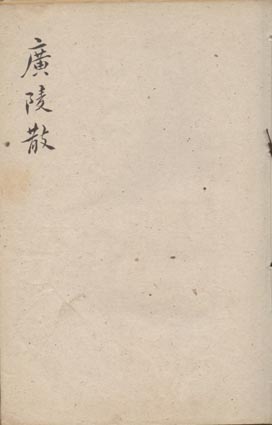 廣陵散